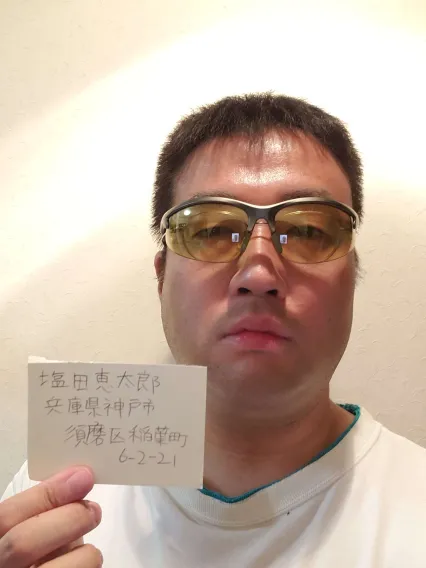 塩田恵太郎
兵庫県神戸市
須磨区稲葉町
6-2-21